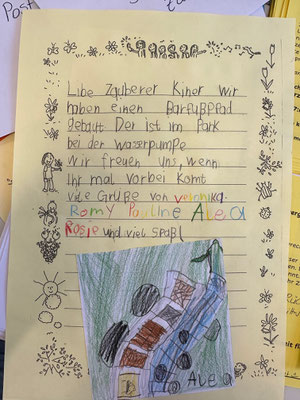 Post
Libe Zauberer Kiner wir
haben einen Barfußpfad
gebaut Der ist im Park
bei der wasserpumpe
Wir freuen uns, wenn
Ihr mal vorbei komt
viele Grüße von veronika.
Romy Pauline Alea
Rosie und viel Spaß!
Alea